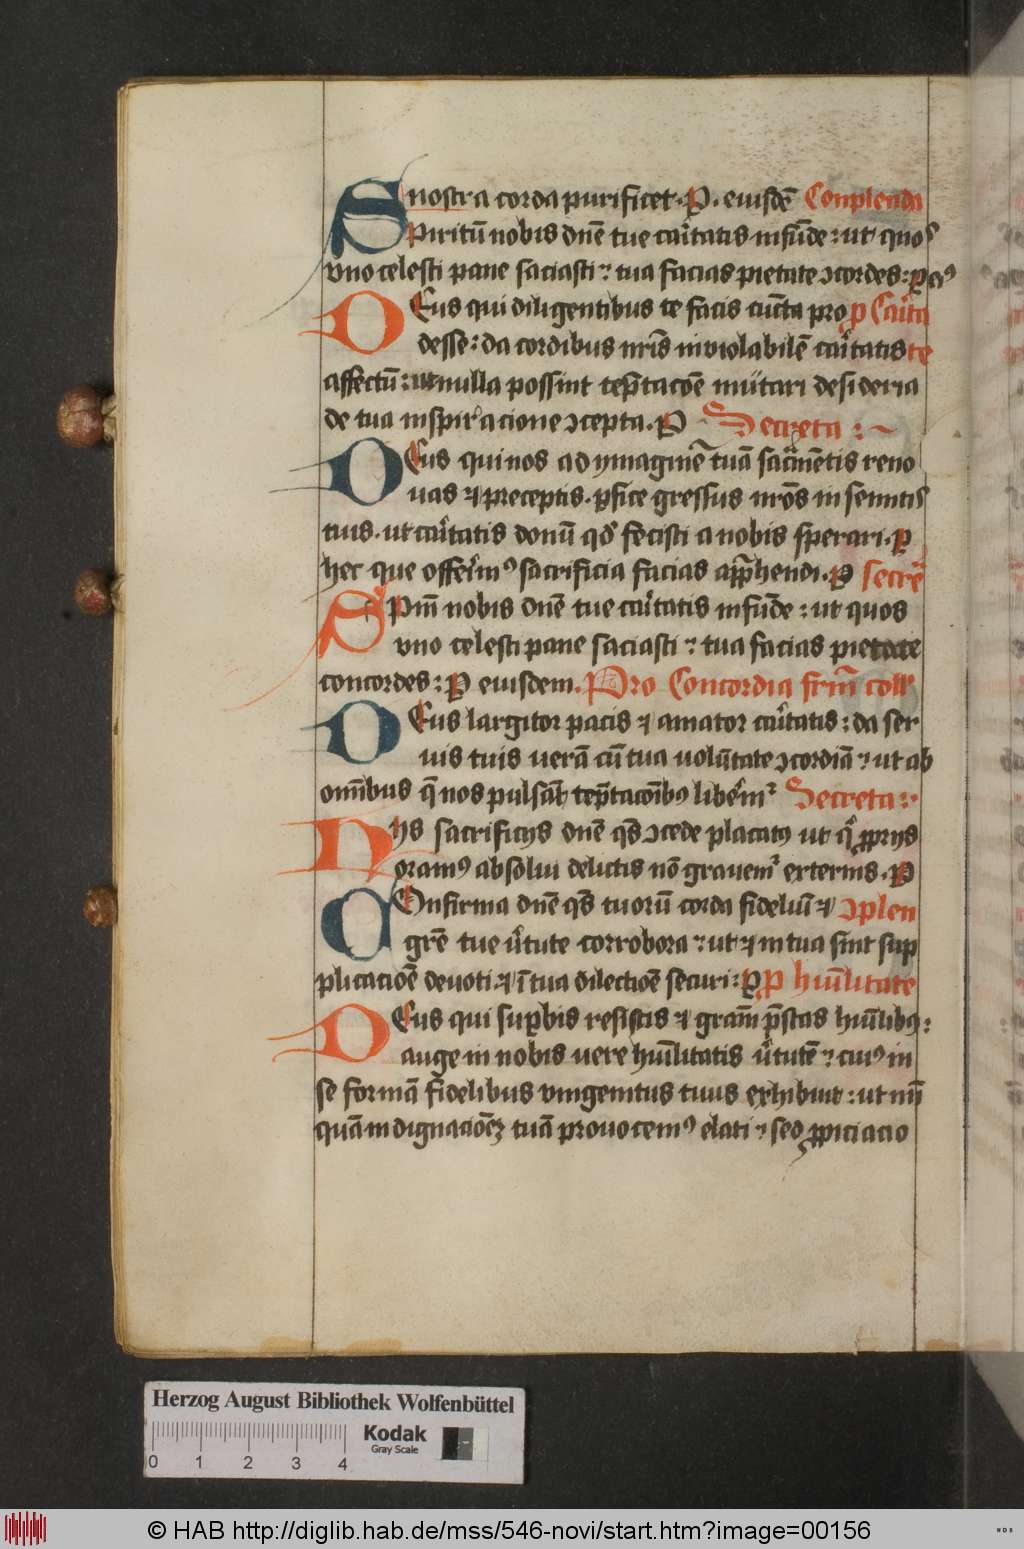 nostra corda purificet. P. eiusdē Conplenda
Spiritū nobis dnē tue caritatis infūde : ut quos
vno celesti pane saciasti : tua facias pietate ɔcordes : P eiꝰ
DEus qui diligentibus te facis cūcta pro p Carita
desse : da cordibus nr̄is inviolabilē caritatis te
affectū : ut nulla possint tēptacōe mutari desideria
de tua inspiracione ɔcepta. P Secreta :
DEus qui nos ad ymaginē tuā sacramētis reno
uas ⁊ preceptis. ꝑfice gressus nr̄os in semitis
tuis. ut caritatis donū qd̄ fecisti a nobis sperari. ꝑ
hec que offerimꝰ sacrificia facias apprehendi. P secre
Spm̄ nobis dnē tue caritatis infūde : ut quos
vno celesti pane saciasti : tua facias pietate
concordes : P eiusdem. Pro Concordia frm̄ coll
DEus largitor pacis ⁊ amator caritatis : da ser
uis tuis uerā cū tua volūtate ɔcordiā : ut ab
omībus q̄ nos pulsāt tēptacōibꝰ liberemr Secreta :
Hys sacrificiis dnē qs̄ ɔcede placatꝰ ut q̄ ꝓpriis
oramꝰ absolui delictis nō grauemr externis. P
COnfirma dnē qs̄ tuorū corda fideliū ⁊ ɔplen
gr̄e tue v̄tute corrobora : ut ⁊ in tua sint sup
plicacōe deuoti ⁊ ī tua dilectiōe securi : P P humilitate
DEus qui suꝑbis resistis ⁊ gram̄ p̄stas humilibꝰ :
auge in nobis uere humilitatis v̄tutē : cuiꝰ in
se formā fidelibus vnigenitus tuus exhibuit : ut nū
quā indignacōez tuā prouocemꝰ elati : sed ꝓpiciacio
Herzog August Bibliothek Wolfenbüttel
Kodak
Gray Scale
0 1 2 3 4
© HAB http://diglib.hab.de/mss/546-novi/start.htm?image=00156
HAB